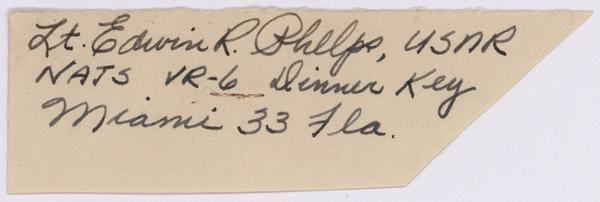 Lt. Edwin R. Phelps, USNR
NATS VR-6 Dinner Key
Miami 33 Fla.